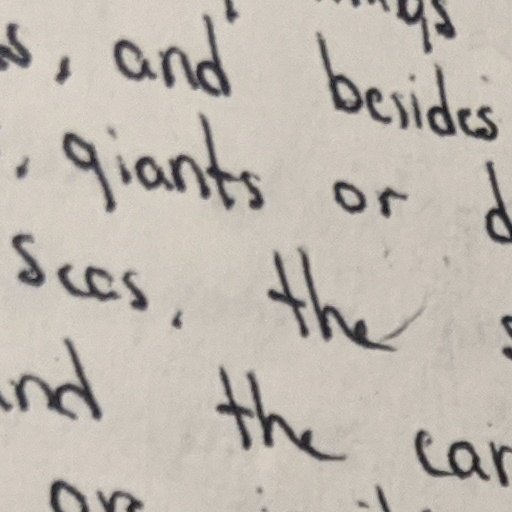 s, and besides
, giants or d
seas, the s
nd the car